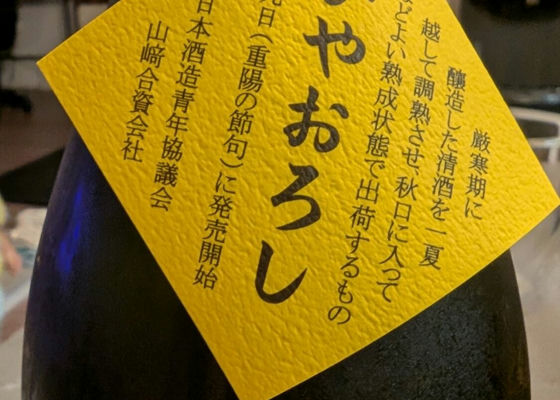 厳寒期に
醸造した清酒を一夏
越して調熟させ、秋口に入って
どよい熟成状態で出荷するもの
やおろし
月（重陽の節句）に発売開始
日本酒造青年協議会
山﨑合資会社